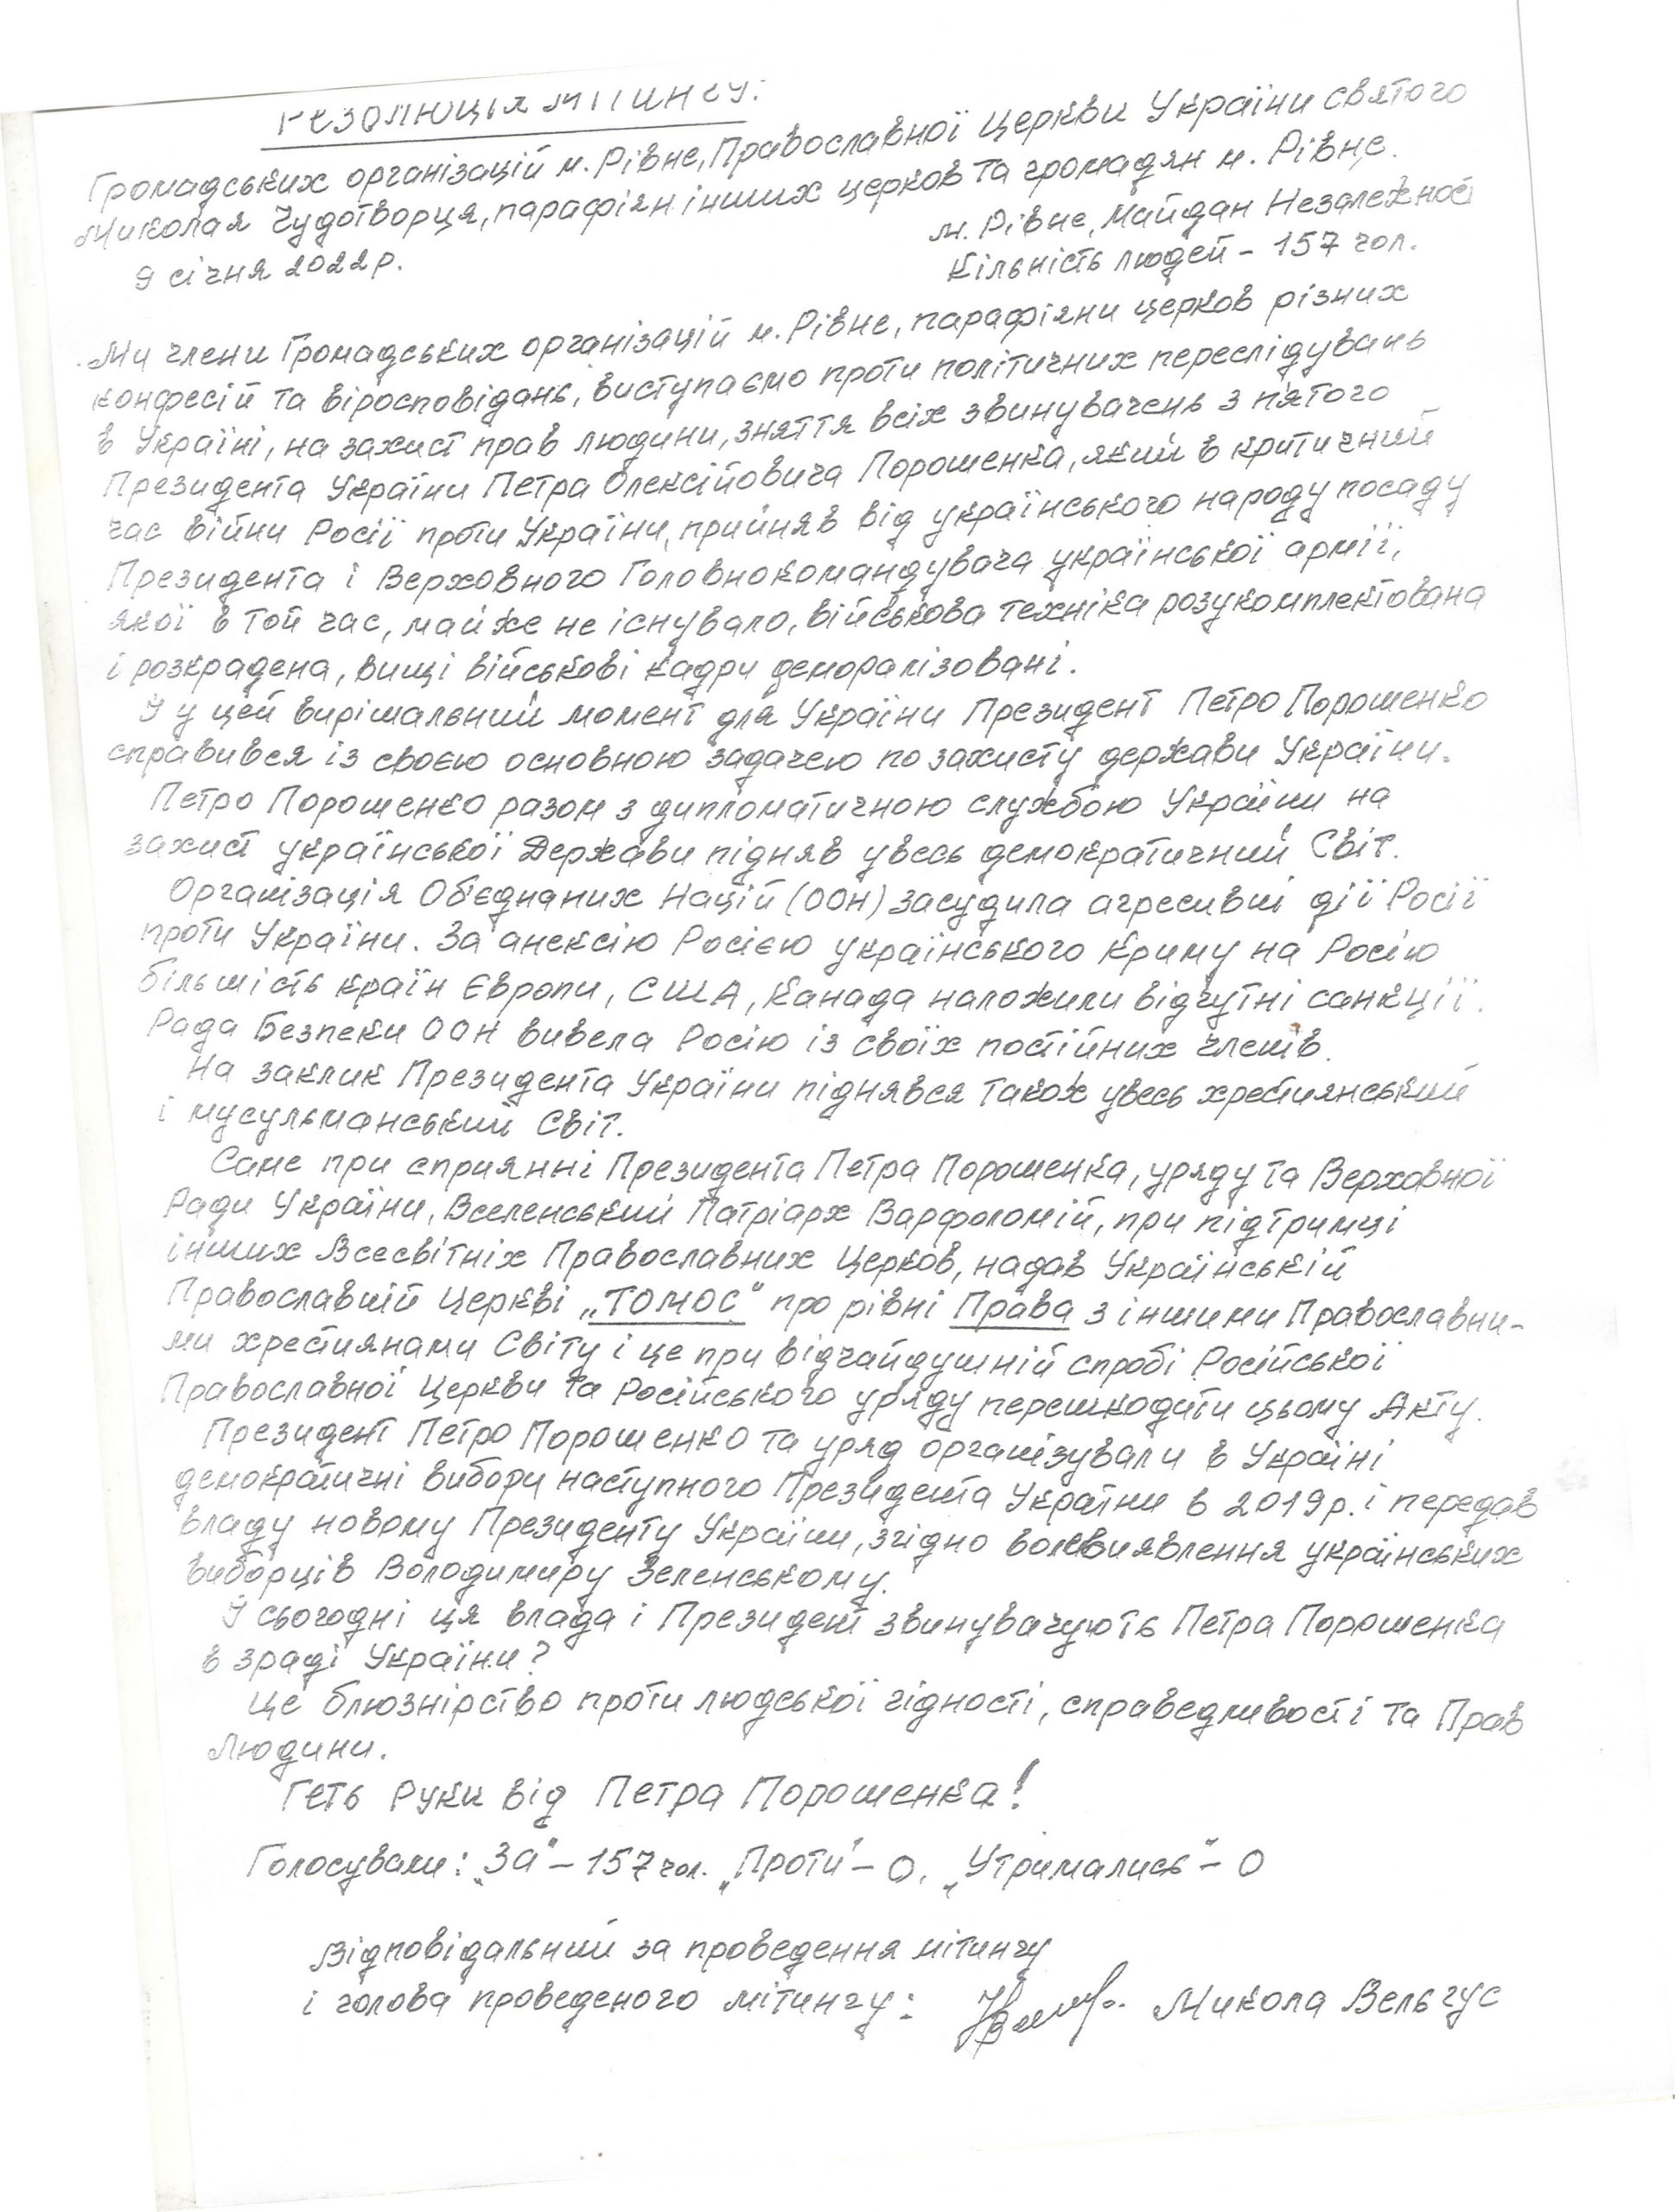 Резолюція мітингу:
Громадських організацій м. Рівне, Православної церкви України святого
Миколая Чудотворця, парафіян інших церков та громадян м. Рівне.
м. Рівне, Майдан Незалежності
9 січня 2022р.
Кількість людей - 157 чол.
Ми члени Громадських організацій м. Рівне, парафіяни церков різних
конфесій та віросповідань, виступаємо проти політичних переслідувань
в Україні, на захист прав людини, зняття всіх звинувачень з п'ятого
Президента України Петра Олексійовича Порошенка, який в критичний
час війни Росії проти України, прийняв від українського народу посаду
Президента і Верховного Головнокомандувача української армії,
якої в той час, майже не існувало, військова техніка розукомплектована
і розкрадена, вищі військові кадри деморалізовані.
І у цей вирішальний момент для України Президент Петро Порошенко
справився із своєю основною задачею по захисту держави України.
Петро Порошенко разом з дипломатичною службою України на
захист української Держави підняв увесь демократичний Світ.
Організація Об'єднаних Націй (ООН) засудила агресивні дії Росії
проти України. За анексію Росією українського Криму на Росію
більшість країн Європи, США, Канада наложили відчутні санкції.
Рада Безпеки ООН вивела Росію із своїх постійних членів.
На заклик Президента України піднявся також увесь християнський
і мусульманський Світ.
Саме при сприянні Президента Петра Порошенка, уряду та Верховної
Ради України, Вселенський Патріарх Варфоломій, при підтримці
інших Всесвітніх Православних Церков, надав Українській
Православній Церкві „ТОМОС" про рівні Права з іншими Православни-
ми християнами Світу і це при відчайдушній спробі Російської
Православної Церкви та Російського уряду перешкодити цьому Акту.
Президент Петро Порошенко та уряд організували в Україні
демократичні вибори наступного Президента України в 2019р. і передав
владу новому Президенту України, згідно волевиявлення українських
виборців Володимиру Зеленському.
І сьогодні ця влада і Президент звинувачують Петра Порошенка
в зраді України?
Це блюзнірство проти людської гідності, справедливості та Прав
Людини.
Геть Руки від Петра Порошенка!
Голосували: „За" - 157 чол. „Проти" - 0, „Утримались" - 0
Відповідальний за проведення мітингу
і голова проведеного мітингу: Микола Вельгус